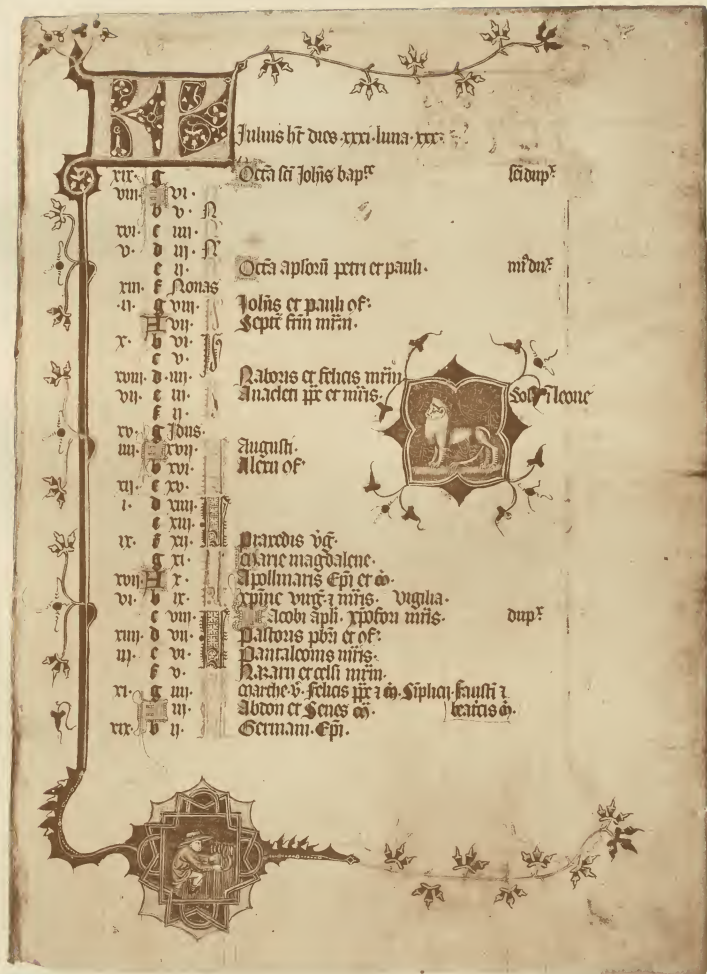 KL
Julius ht dies xxxi. luna xxx.
xix. g Octa sci Johis bapte sci dupx
viii. A vi.
b v. N
xvi. c iiii.
v. d iii. N
e ii. Octa apsorum petri et pauli.
xiii. f Nonas
ii. g viii. Johis et pauli of.
A vii. Septe frm mrm.
x. b vi.
c v.
xviii. d iiii. Naboris et felicis mrm
vii. e iii. Anacleti ppe et mris. Sol in leone
f ii.
xv. g Idus.
iiii. A xvii. Augusti.
b xvi. Alexii of.
xii. c xv.
i. d xiiii.
e xiii.
ix. f xii. Praxedis vg.
g xi. Marie magdalene.
xvii. A x. Apollinaris Epi et m.
vi. b ix. xpine virg. z mris. Vigilia.
c viii. Jacobi apli. xpofori mris. dupx
xiiii. d vii. Pastoris pbri et of.
iii. e vi. Pantaleonis mris.
f v. Nazarii et celsi mrm.
xi. g iiii. Marthe. v. felicis ppe z m. Siplicii. fausti z
A iii. Abdon et Senes m. beatcis m.
xix. b ii. Germani. Epi.